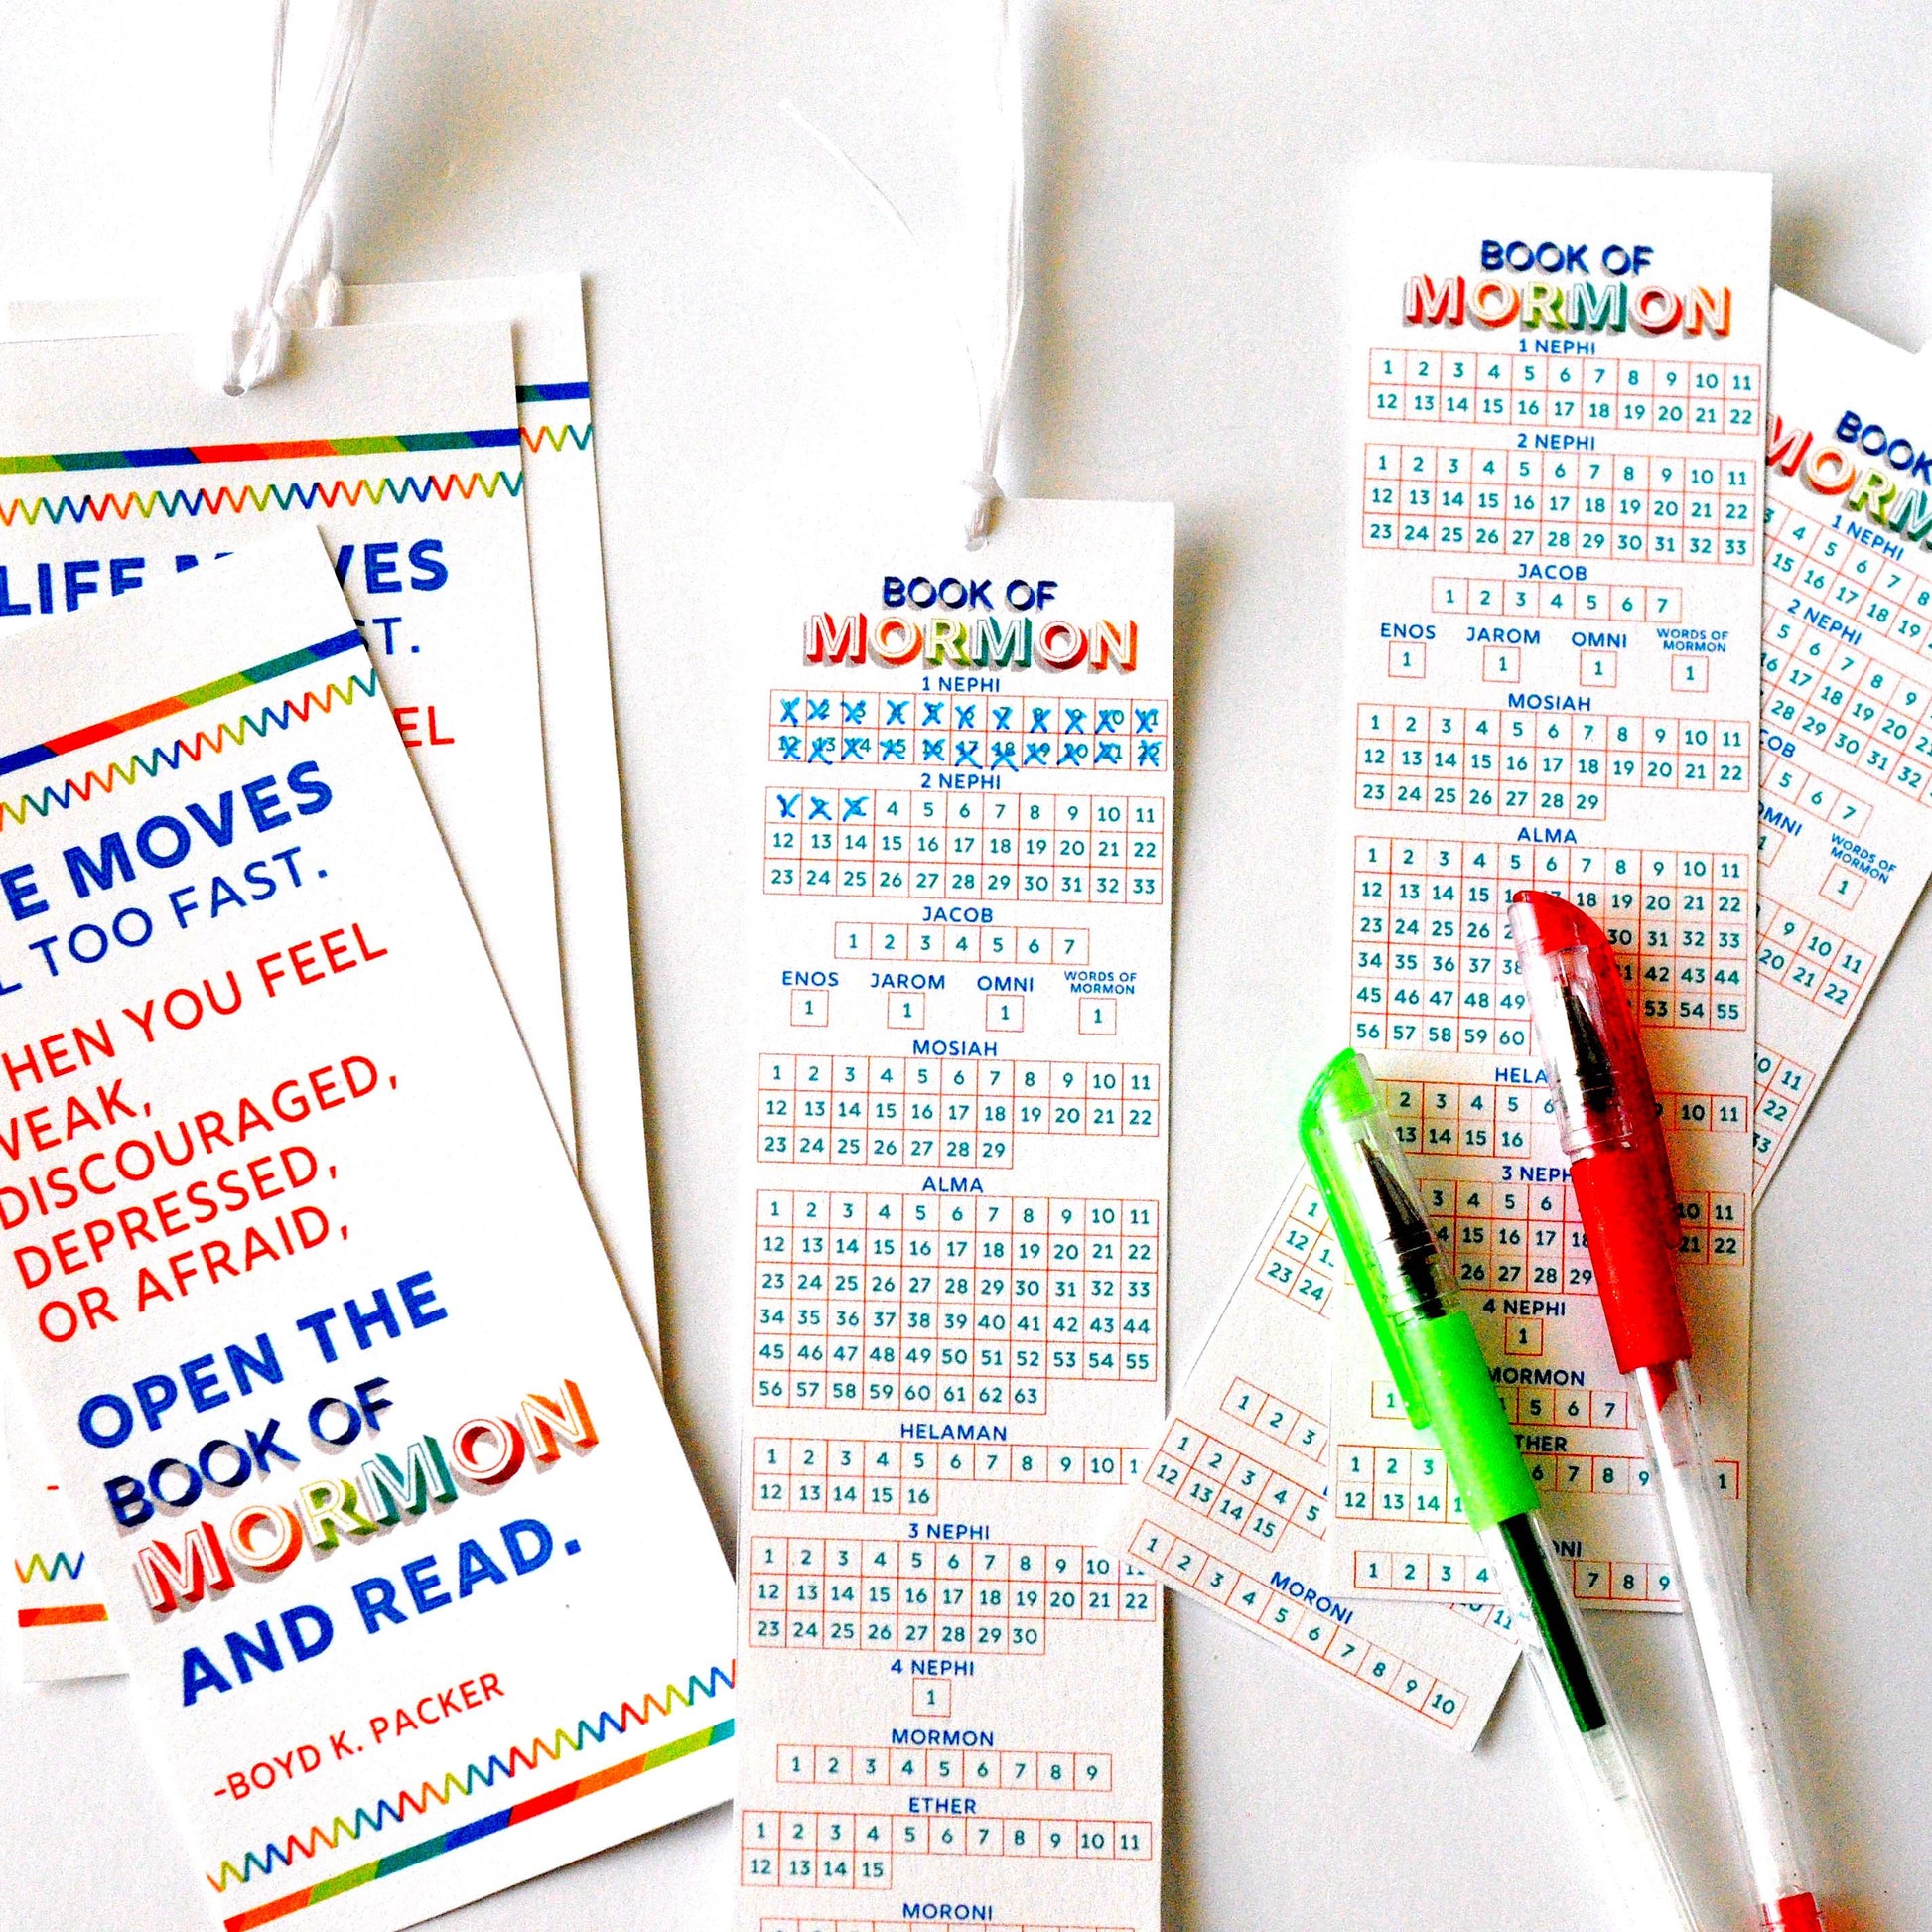 LIFE
VES
EL
E MOVES
TOO FAST.
HEN YOU FEEL
WEAK,
DISCOURAGED,
DEPRESSED,
OR AFRAID,
OPEN THE
BOOK OF
MORMON
AND READ.
-BOYD K. PACKER
BOOK OF
MORMON
1 NEPHI
2 NEPHI
4 5 6 7 8 9 10 11
12 13 14 15 16 17 18 19 20 21 22
23 24 25 26 27 28 29 30 31 32 33
JACOB
1 2 3 4 5 6 7
ENOS JAROM OMNI WORDS OF MORMON
1 1 1 1
MOSIAH
1 2 3 4 5 6 7 8 9 10 11
12 13 14 15 16 17 18 19 20 21 22
23 24 25 26 27 28 29
ALMA
1 2 3 4 5 6 7 8 9 10 11
12 13 14 15 16 17 18 19 20 21 22
23 24 25 26 27 28 29 30 31 32 33
34 35 36 37 38 39 40 41 42 43 44
45 46 47 48 49 50 51 52 53 54 55
56 57 58 59 60 61 62 63
HELAMAN
1 2 3 4 5 6 7 8 9 10
12 13 14 15 16
3 NEPHI
1 2 3 4 5 6 7 8 9 10
12 13 14 15 16 17 18 19 20 21 22
23 24 25 26 27 28 29 30
4 NEPHI
1
MORMON
1 2 3 4 5 6 7 8 9
ETHER
1 2 3 4 5 6 7 8 9 10 11
12 13 14 15
MORONI
BOOK OF
MORMON
1 NEPHI
1 2 3 4 5 6 7 8 9 10 11
12 13 14 15 16 17 18 19 20 21 22
2 NEPHI
1 2 3 4 5 6 7 8 9 10 11
12 13 14 15 16 17 18 19 20 21 22
23 24 25 26 27 28 29 30 31 32 33
JACOB
1 2 3 4 5 6 7
ENOS JAROM OMNI WORDS OF MORMON
1 1 1 1
MOSIAH
1 2 3 4 5 6 7 8 9 10 11
12 13 14 15 16 17 18 19 20 21 22
23 24 25 26 27 28 29
ALMA
1 2 3 4 5 6 7 8 9 10 11
12 13 14 15 18 19 20 21 22
23 24 25 26 30 31 32 33
34 35 36 37 38 42 43 44
45 46 47 48 49 53 54 55
56 57 58 59 60
HELA
2 3 4 5 6 10 11
13 14 15 16
3 NEPH
3 4 5 6 10 11
15 16 17 18 21 22
26 27 28 29
4 NEPHI
1
MORMON
1 5 6 7
THER
1 2 3 6 7 8 9
12 13 14
1 2 3 4 7 8 9
BOOK
MORM
1 NEPHI
3 4 5 6 7 8
15 16 17 18 19
2 NEPHI
5 6 7 8 9
16 17 18 19 20 21
28 29 30 31 32
COB
5 6 7
OMNI WORDS OF MORMON
1 1
9 10 11
20 21 22
11
22
33
1
12
23 24
1 2 3
1 2 3 4 5
12 13 14 15
MORONI
1 2 3 4 5 6 7 8 9 10